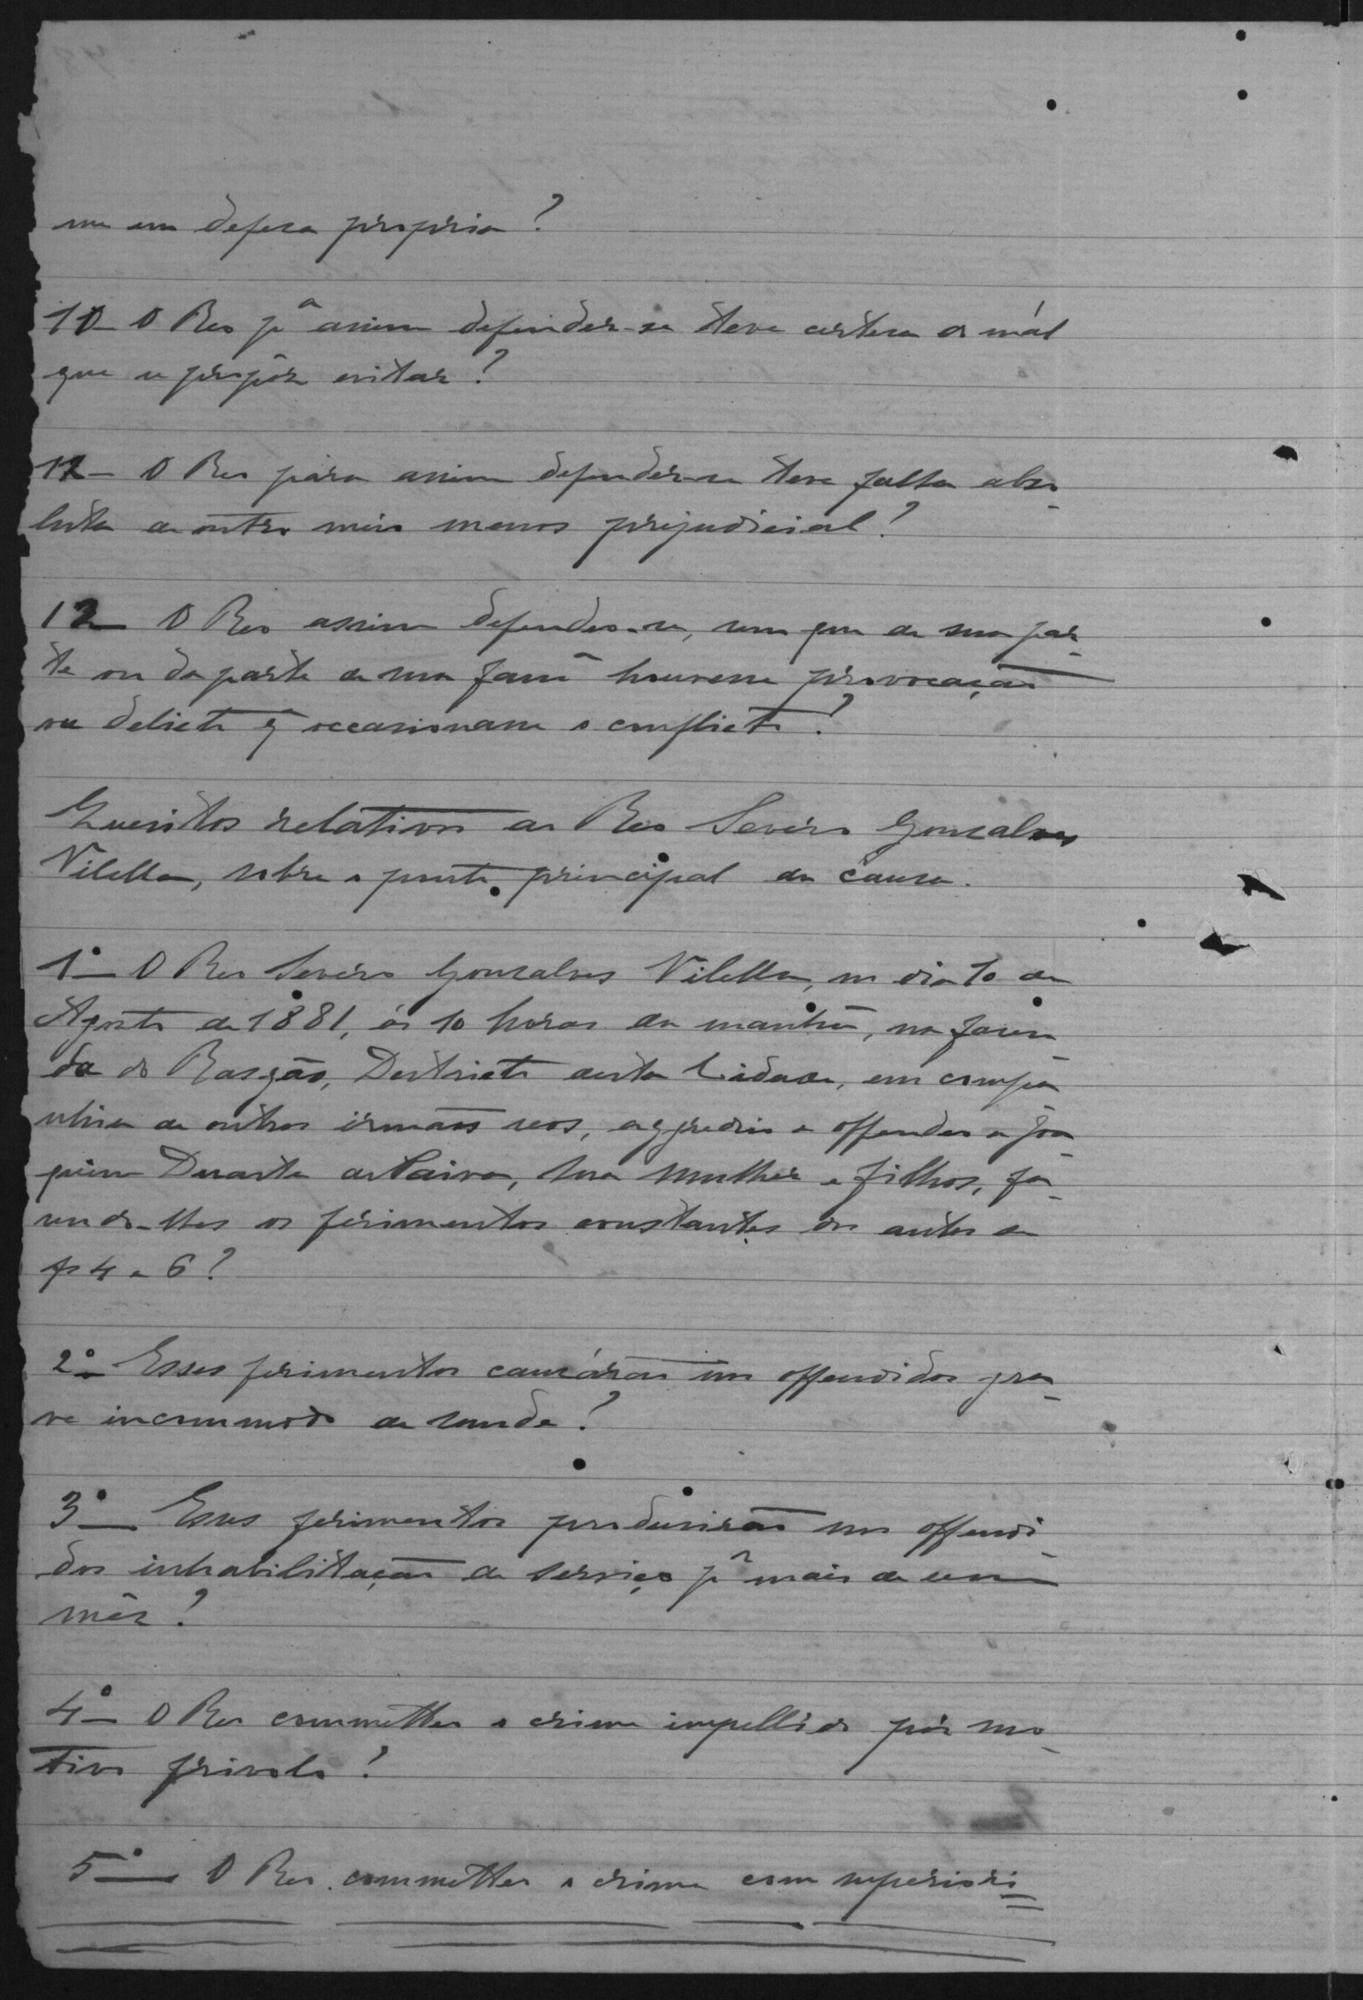 me em defesa propria?
10 – O Reo pª assim defender-se teve certesa do mál
que se propôz evitar?
11 – O Reo para assim defender-se teve falta abso-
luta de outro meio menos prejudicial?
12 – O Reo assim defendeo-se, sem que de sua par-
te ou da parte de sua famª houvesse provocação
ou delicto q̃ occasionasse o conflicto?
Quesitos relativos ao Reo Severo Gonçalves
Vilella, sobre o ponto principal da causa.
1º – O Reo Severo Gonçalves Vilella, no dia 10 de
Agosto de 1881, ás 10 horas da manhã, na fasen-
da do Rasgão, Destricto desta Cidade, em compa-
nhia de outros irmãos seos, aggredio e offendeo a Joa-
quim Duarte de Paiva, sua mulher e filhos, fa-
sendo-lhes os ferimentos constantes dos autos de
fs 4 a 6?
2º – Esses ferimentos causárão nos offendidos gra-
ve incommodo de saude?
3º – Esses ferimentos produsirão nos offendi-
dos inhabilitação de serviço pª mais de um
mêz?
4º – O Reo commetteo o crime impellido por mo-
tivo frivolo?
5º – O Reo commetteo o crime com superiori-